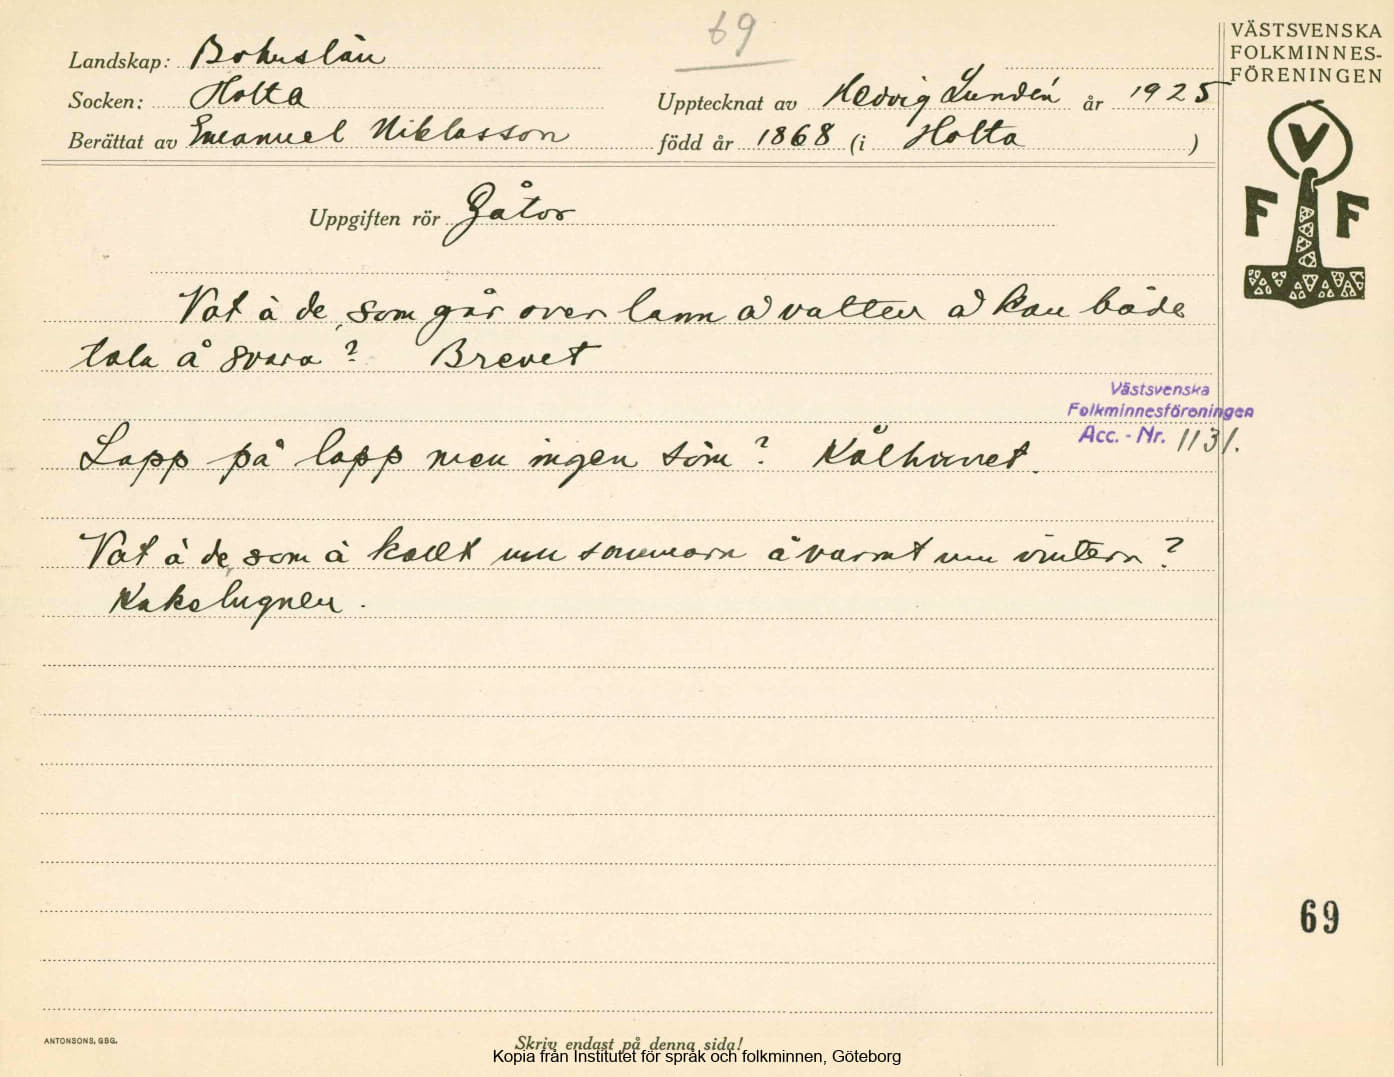 69
VÄSTSVENSKA
FOLKMINNES-
FÖRENINGEN
Landskap: Bohuslän
Socken: Holta
Upptecknat av Hedvig Lundén år 1925
Berättat av Emanuel Niklasson
född år 1868 (i Holta )
V
F F
Uppgiften rör Gåtor
Vat ä de, som går over lann å vatten å kan både
tala å svara? Brevet
Västsvenska
Folkminnesföreningen
Acc. - Nr. 1131.
Lapp på lapp men ingen söm? Kålhuvet.
Vat ä de, som ä kallt um sommarn å varmt um vintern?
Kakelugnen.
69
ANTONSONS, GBG.
Skriv endast på denna sida!
Kopia från Institutet för språk och folkminnen, Göteborg